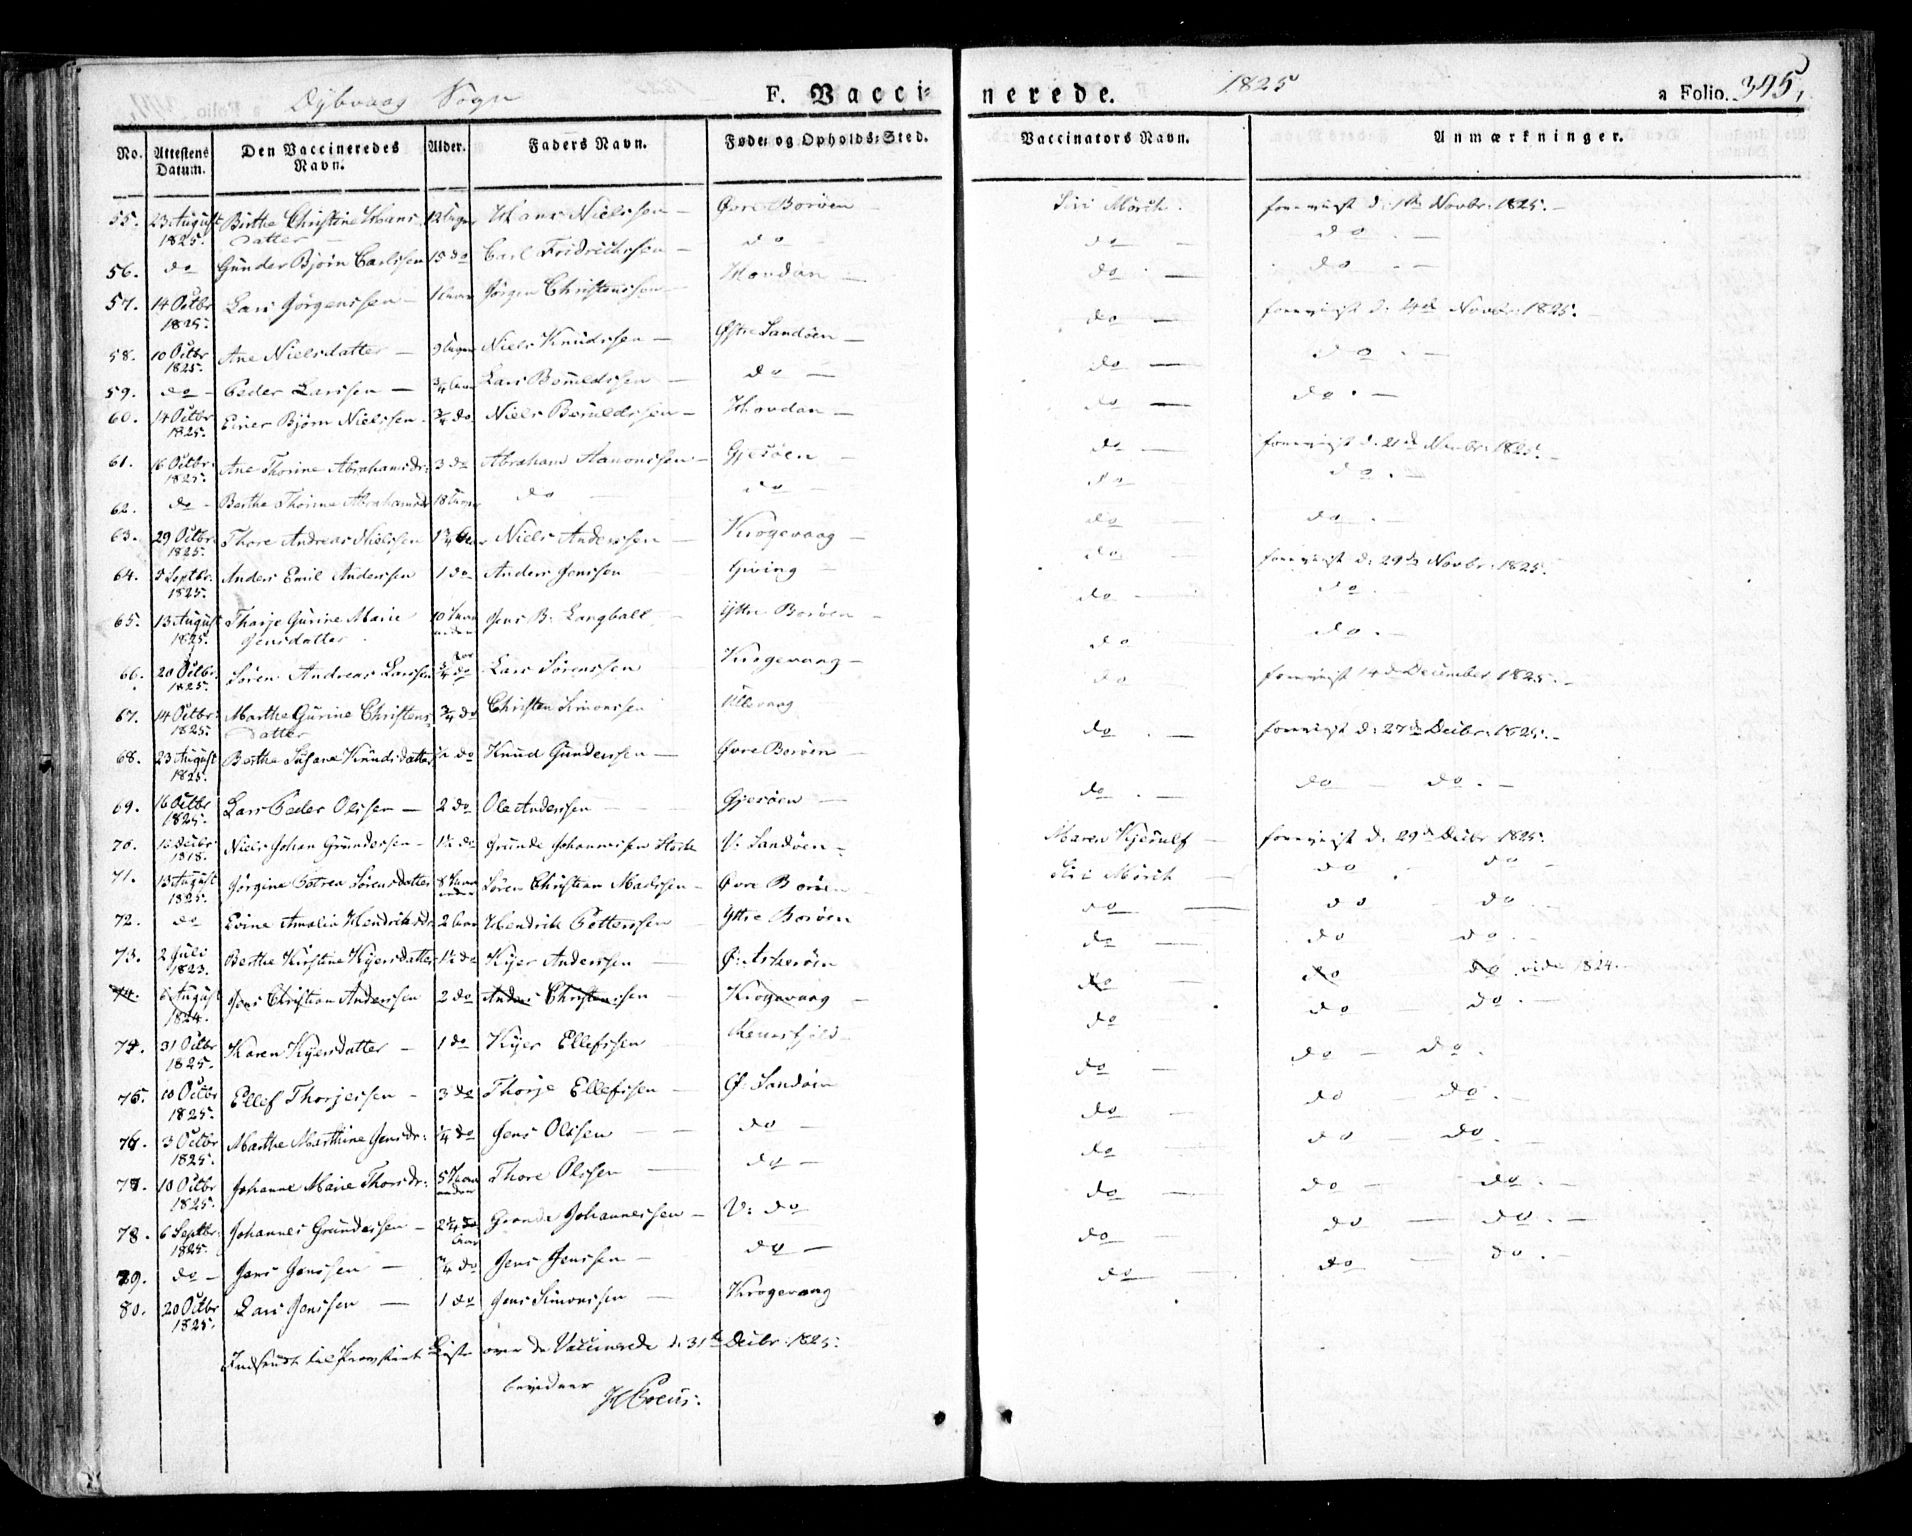 Dybvaag Sogn F. Vaccinerede. 1825 a Folio. 395,
No. Attestens Datum. Den Vaccineredes Navn. Alder. Faders Navn. Føde- og Opholds-Sted. Vaccinators Navn. Anmærkninger.
55. 23 August 1825. Birthe Christine Hans datter 12 Uger Hans Nielssen Øvre Borøen Siri Mörch foreviist d: 1ste Novbr: 1825.
56. do Gunder Bjørn Carlssen 15 do Carl Fridrichssen do do do
57. 14 Octbr 1825. Lars Jörgenssen 1 Aar Jörgen Christenssen Hovdan do do
58. 10 Octbr 1825. Ane Nielsdatter 9 Uger Niels Knudssen Østre Sandøen do foreviist d: 4de Novbr: 1825.
59. do Peder Larssen 3/4 Aar Lars do do do
60. 14 Octbr 1825. Einer Bjørn Nielssen 3/4 do Niels Hovdan do do
61. 16 Octbr. 1825. Ane Thorine Abrahamsdr: 3 do Abraham Aanonssen Gjesöen do foreviist d: 21de Novbr: 1825.
62. do Berthe Thorine Abrahamsdr 18 do do do do
63. 29 Octbr. 1825. Thore Andreas Nielssen 1 3/4 Aar Niels Anderssen Krogevaag do do
64. 5 Septbr. 1825. Anders Emil Anderssen 1 do Anders Jenssen Giving do foreviist d: 29de Novbr: 1825.
65. 13 August 1825. Tharje Gurine Marie Jensdatter 10 Jens B. Langball Yttre Borøen do do
66. 20 Octbr. 1825. Sören Andreas Larssen 3/4 do Lars Sörenssen Krogevaag do do
67. 14 Octbr: 1825. Marthe Gurine Christens datter 3/4 do Christen Simonssen Ullevaag do foreviist 14de December 1825.
68. 23 August 1825. Berthe Susane Knudsdatter 1/2 do Knud Gunderssen Øvre Borøen do foreviist d: 27de Decbr: 1825.
69. 16 Octbr 1825. Lars Peder Olssen 2 do Ole Anderssen Gjesöen do do do
70. Decbr 1818. Niels Johan Grunderssen 1 1/2 do Grunde Johannessen V: Sandøen Maren Kjerulf foreviist d: 29de Decbr 1825.
71. 13 August 1825. Jörgine Petrea Sörensdatter 8 Sören Christian Madssen Øvre Borøen Siri Mörch do do
72. do Evine Amalia Hendriksdr 2 Aar Hendrik Petterssen Yttre Borøen do do do
73. 2 Juli 1823. Berthe Kirstine Kyersdatter 1 1/2 do Kyer Anderssen Ø: Askerøen do do do
74. 6 August 1824. Jens Christian Anderssen 2 do Anders Christenssen Krogevaag do do do vide 1824.
74. 31 Octbr 1825. Karen Kyersdatter 1 do Kyer Ellefssen do do do
75. 10 Octbr 1825. Ellef Thorjerssen 3 do Thorje Ellefssen Ø: Sandøen do do do
76. 3 Octbr 1825. Marthe Marthine Jensdr: 1/4 do Jens Olssen do do do do
77. 10 Octbr 1825. Johanne Marie Thorsdr: 5 Thore Olssen do do do do
78. 6 Septbr: 1825. Johannes Grunderssen 2 1/4 Aar Grunde Johannessen V: do do do do
79. do Jens Jenssen 3/4 do Jens Jenssen do do do do
80. 20 Octbr 1825. Lars Jenssen 1 do Jens Simonssen Krogevaag do do do
Indsendt til Provstiet Liste over de Vaccinerede d: 31te Decbr: 1825.
bevidner